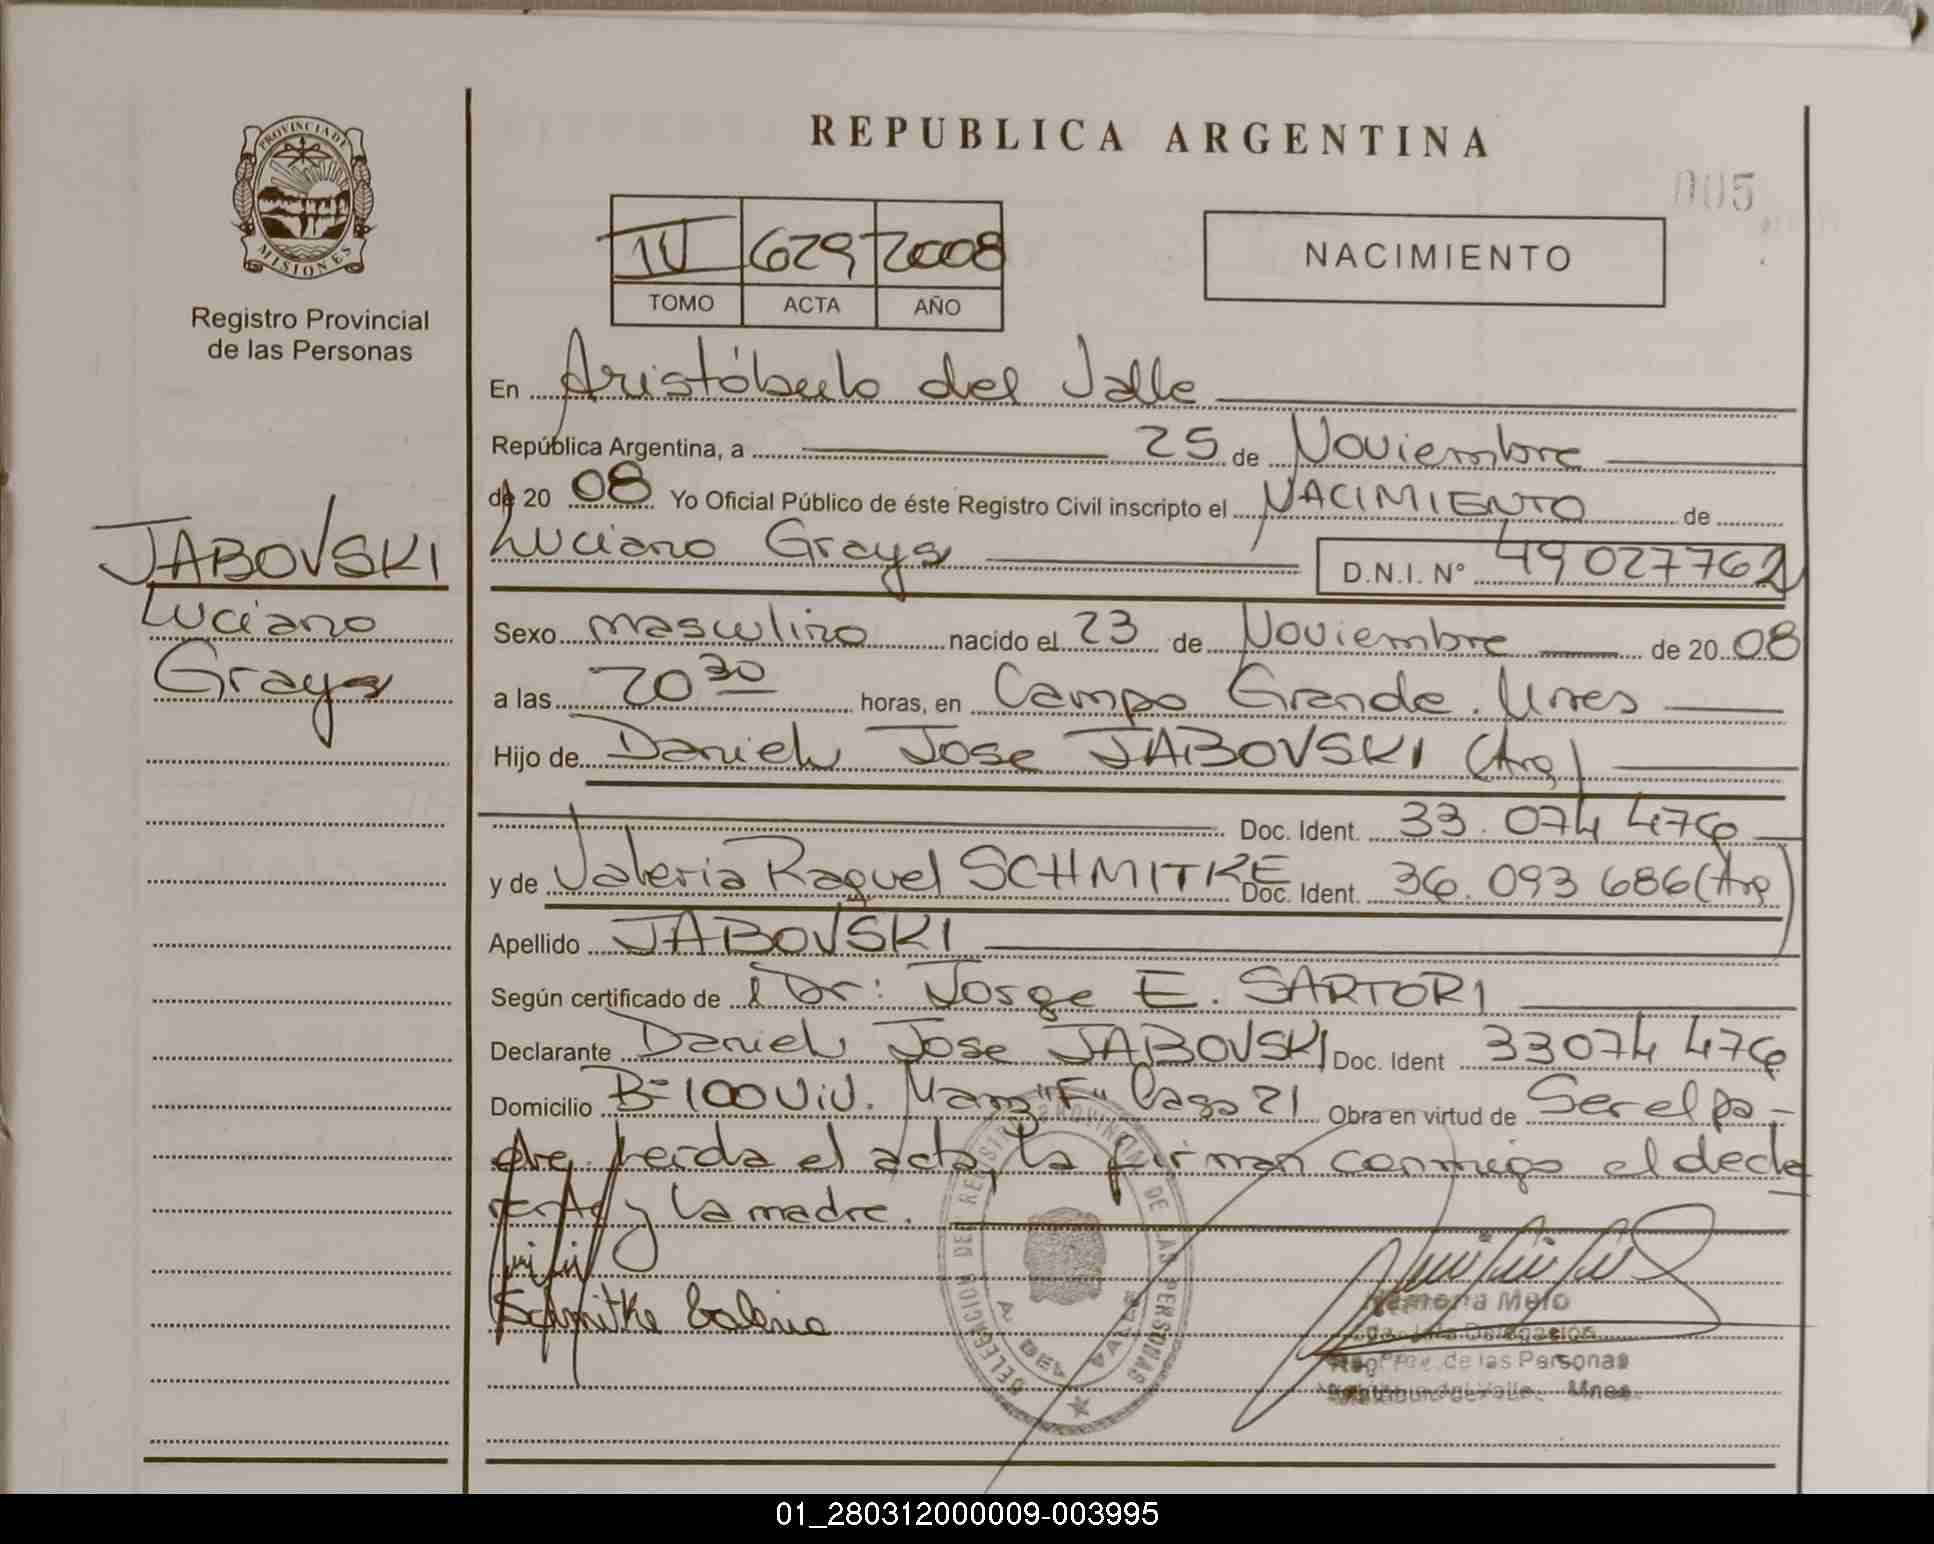 REPUBLICA ARGENTINA
005
PROVINCIA DE
MISIONES
Registro Provincial
de las Personas
IV 629 2008
TOMO ACTA AÑO
NACIMIENTO
En Aristóbulo del Valle
República Argentina, a 25 de Noviembre
de 20 08 Yo Oficial Público de éste Registro Civil inscripto el NACIMIENTO de
JABOVSKI
Luciano
Luciano D.N.I. Nº 49 027762
Sexo masculino nacido el 23 de Noviembre de 20 08
a las 20 30 horas, en Campo Grande. Mnes
Hijo de Daniel Jose JABOVSKI (Arg)
Doc. Ident. 33.074 476
y de Valeria Raquel SCHMITKE Doc. Ident. 36.093 686 (Arg)
Apellido JABOVSKI
Según certificado de Dr: Jorge E. SARTORI
Declarante Daniel Jose JABOVSKI Doc. Ident 33074 476
Domicilio B= 100 Viv. Manz "F" Casa 21 Obra en virtud de Ser el pa-
dre. Leida el acta, la firman conmigo el decla
rante y la madre.
Schmitke
DELEGACION DEL REGISTRO PROVINCIAL DE LAS PERSONAS
Ramona Melo
Delegación
de las Personas
del Valle Mnes.
01_280312000009-003995